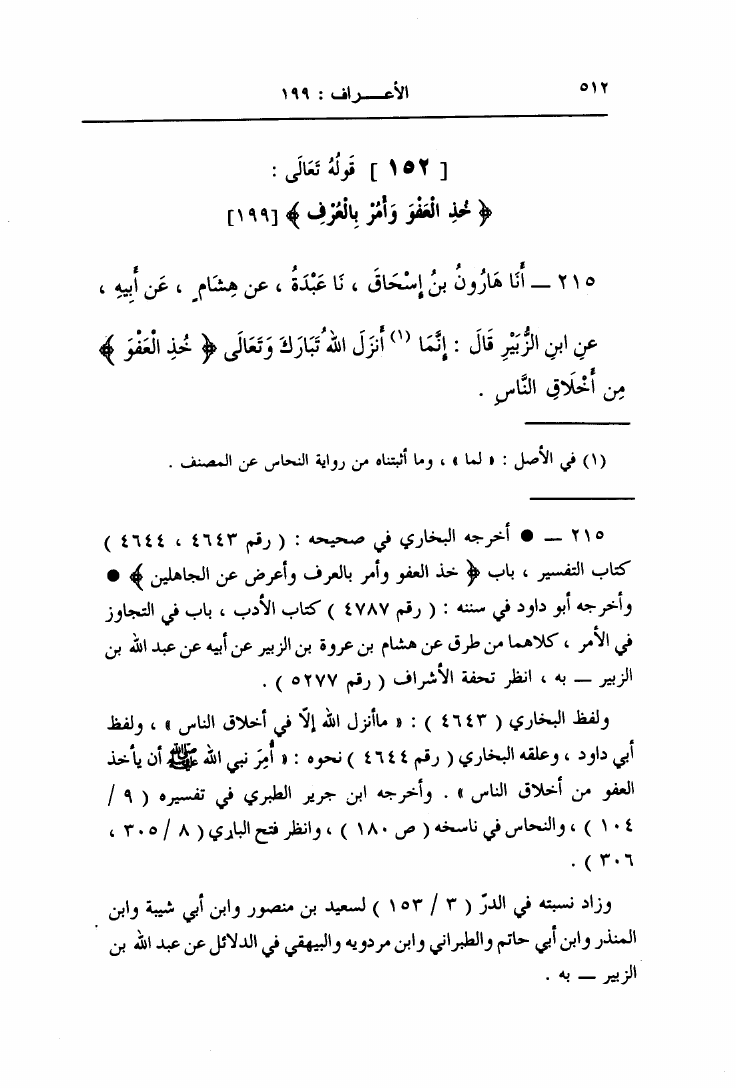 ٥١٢
الأعـــراف : ١٩٩
[ ١٥٢ ] قَولُهُ تَعَالَى :
﴿ خُذِ الْعَفْوَ وَأْمُرْ بِالْعُرْفِ ﴾ [١٩٩]
٢١٥ — أَنَا هَارُونُ بنُ إِسْحَاقَ ، نَا عَبْدَةُ ، عن هِشَامٍ ، عَن أَبِيهِ ،
عنِ ابنِ الزُّبَيْرِ قَالَ : إِنَّمَا (١) أَنزَلَ اللهُ تَبَارَكَ وَتَعَالَى ﴿ خُذِ الْعَفْوَ ﴾
مِن أَخْلَاقِ النَّاسِ .
(١) في الأصل : « لما » ، وما أثبتناه من رواية النحاس عن المصنف .
٢١٥ — ● أخرجه البخاري في صحيحه : ( رقم ٤٦٤٣ ، ٤٦٤٤ )
كتاب التفسير ، باب ﴿ خذ العفو وأمر بالعرف وأعرض عن الجاهلين ﴾ ●
وأخرجه أبو داود في سننه : ( رقم ٤٧٨٧ ) كتاب الأدب ، باب في التجاوز
في الأمر ، كلاهما من طرق عن هشام بن عروة بن الزبير عن أبيه عن عبد الله بن
الزبير — به ، انظر تحفة الأشراف ( رقم ٥٢٧٧ ) .
ولفظ البخاري ( ٤٦٤٣ ) : « ماأنزل الله إلّا في أخلاق الناس » ، ولفظ
أبي داود ، وعلقه البخاري ( رقم ٤٦٤٤ ) نحوه : « أُمِرَ نبي الله ﷺ أن يأخذ
العفو من أخلاق الناس » . وأخرجه ابن جرير الطبري في تفسيره ( ٩ /
١٠٤ ) ، والنحاس في ناسخه ( ص ١٨٠ ) ، وانظر فتح الباري ( ٨ / ٣٠٥ ،
٣٠٦ ) .
وزاد نسبته في الدرّ ( ٣ / ١٥٣ ) لسعيد بن منصور وابن أبي شيبة وابن
المنذر وابن أبي حاتم والطبراني وابن مردويه والبيهقي في الدلائل عن عبد الله بن
الزبير — به .